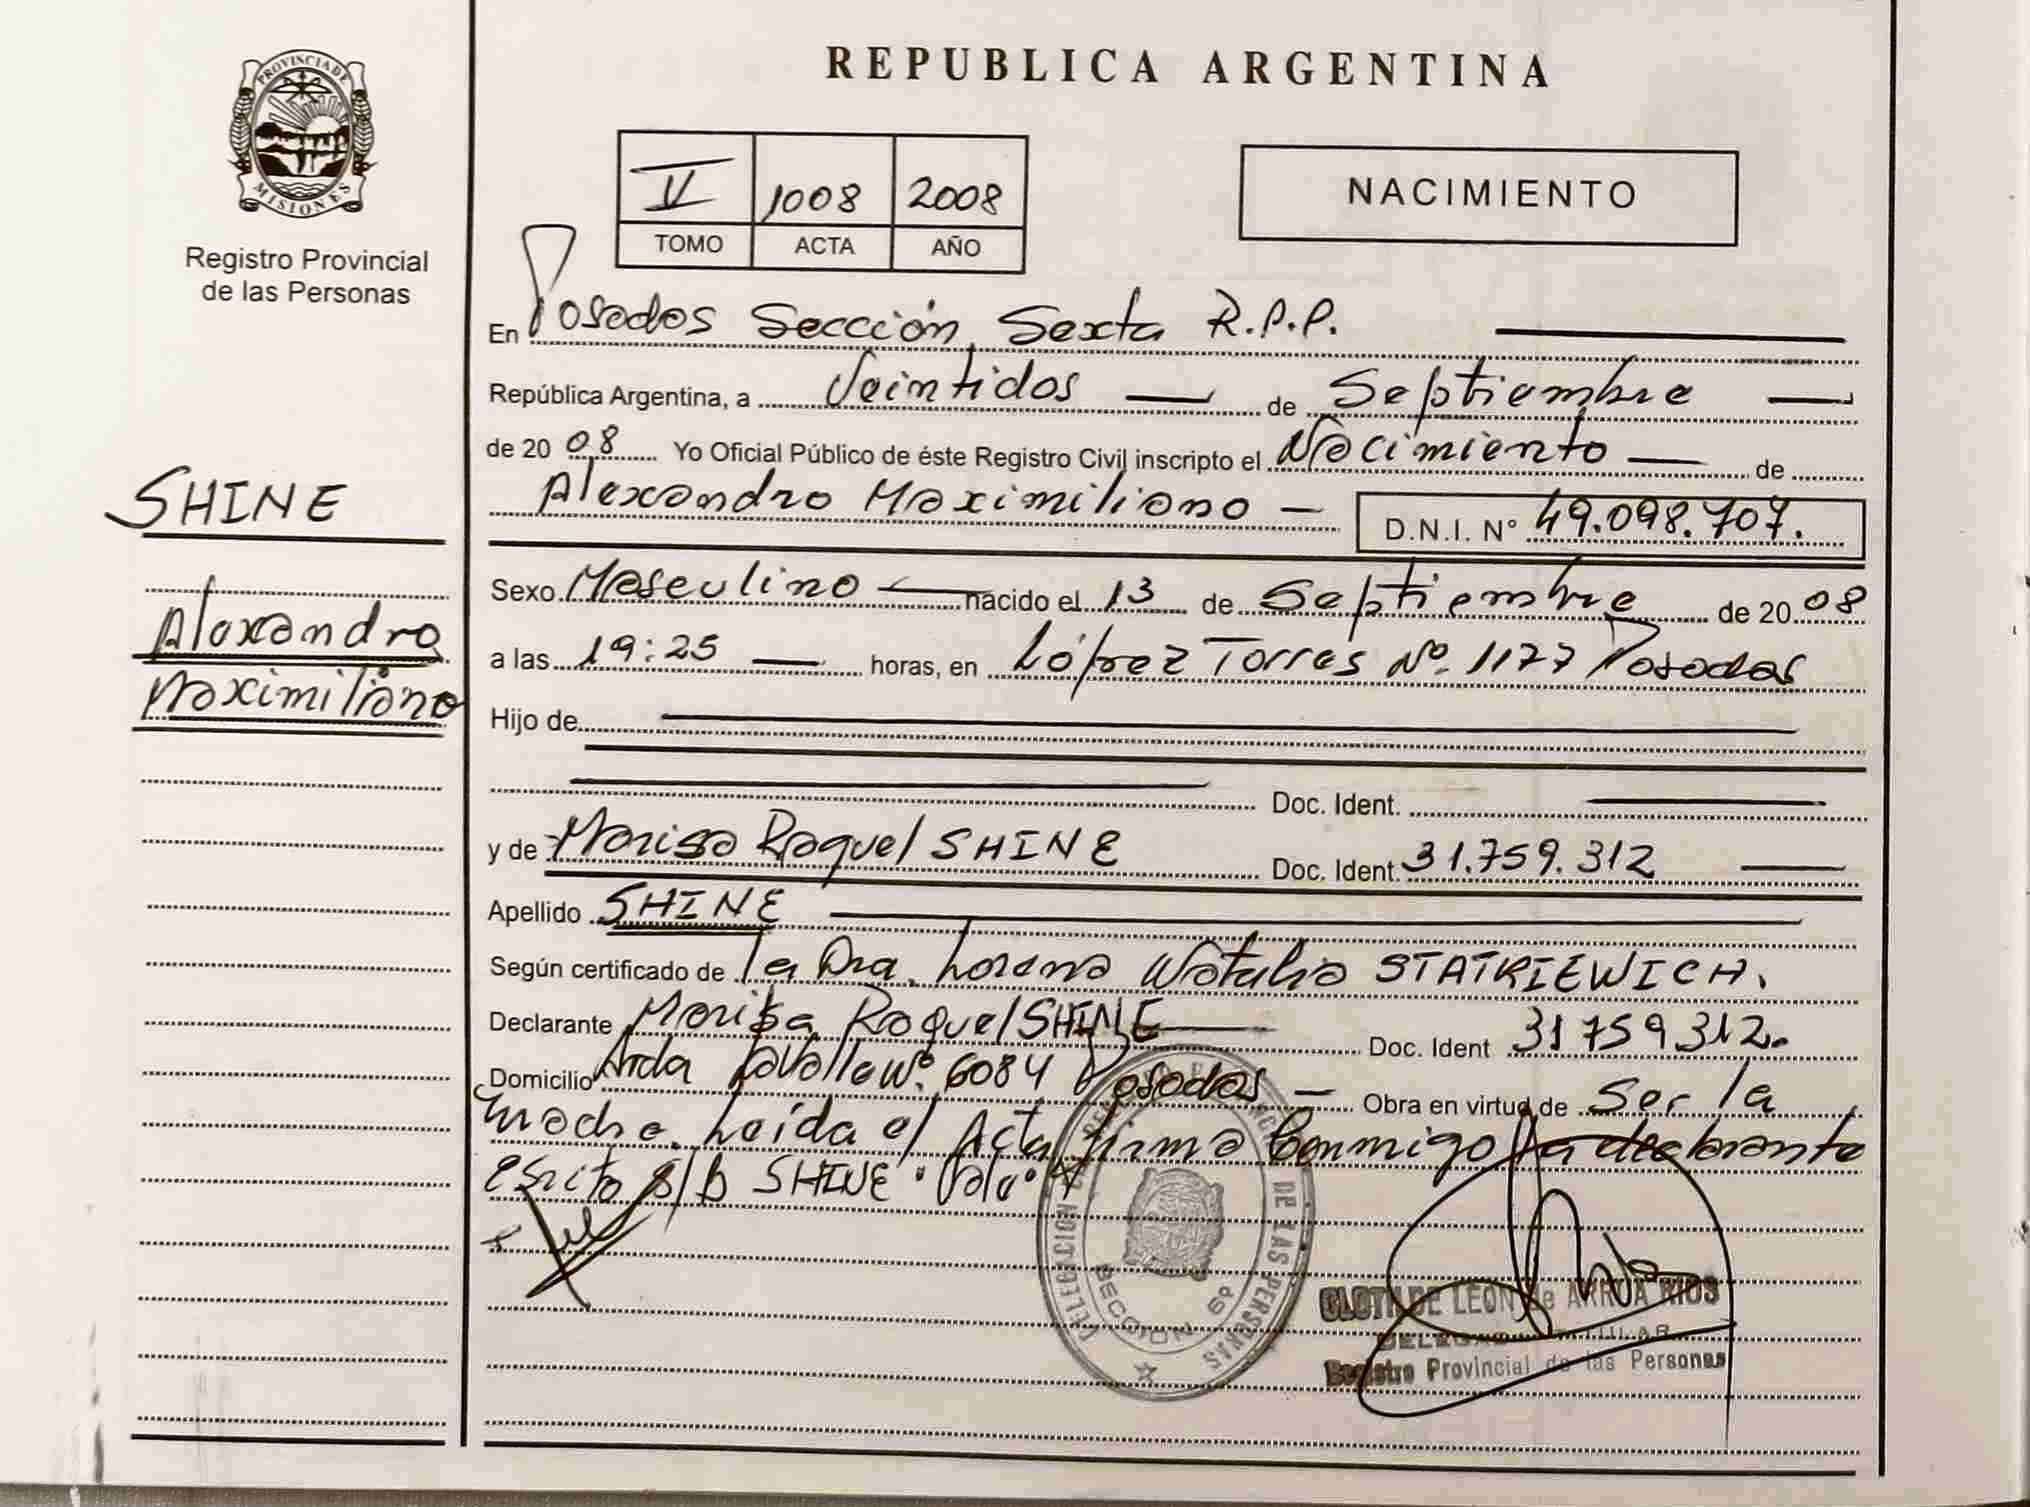 PROVINCIA DE
MISIONES
Registro Provincial
de las Personas
SHINE
Alexandro
Maximiliano
REPUBLICA ARGENTINA
V 1008 2008
TOMO ACTA AÑO
NACIMIENTO
En Posadas Sección Sexta R.P.P.
República Argentina, a Veintidos de Septiembre
de 2008 Yo Oficial Público de éste Registro Civil inscripto el Nacimiento de
Alexandro Maximiliano D.N.I. N° 49.098.707.
Sexo Masculino nacido el 13 de Septiembre de 2008
a las 19:25 horas, en López Torres Nº. 1177 Posadas
Hijo de
Doc. Ident.
y de Marisa Raquel SHINE Doc. Ident. 31.759.312
Apellido SHINE
Según certificado de la Dra. Lorena Natalia STATKIEWICH.
Declarante Marisa Raquel SHINE Doc. Ident 31759312.
Domicilio Avda Lavalle Nº. 6084 Posadas Obra en virtud de Ser la
madre. Leída el Acta firma Conmigo la declarante
Escrito s/b SHINE. Vale.
DELEGACION DEL REGISTRO DE LAS PERSONAS
SECCION 6º
CLOTILDE LEON de ARRUA RIOS
DELEGADA TITULAR
Registro Provincial de las Personas